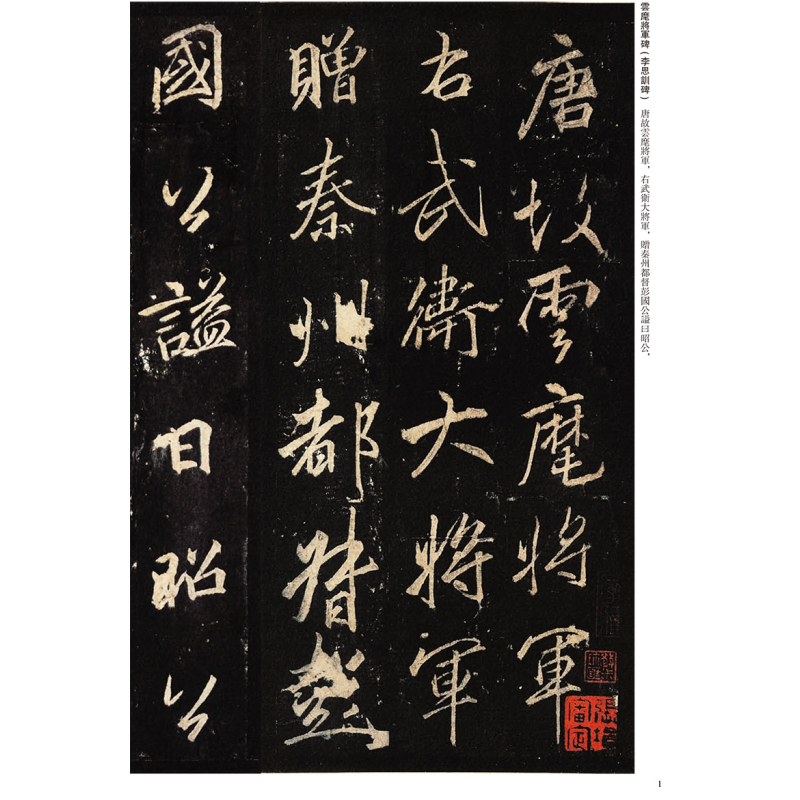 雲麾將軍碑（李思訓碑） 唐故雲麾將軍，右武衛大將軍，贈秦州都督彭國公謚曰昭公，
唐故雲麾將軍
右武衛大將軍
贈秦州都督彭
國公謚曰昭公
1